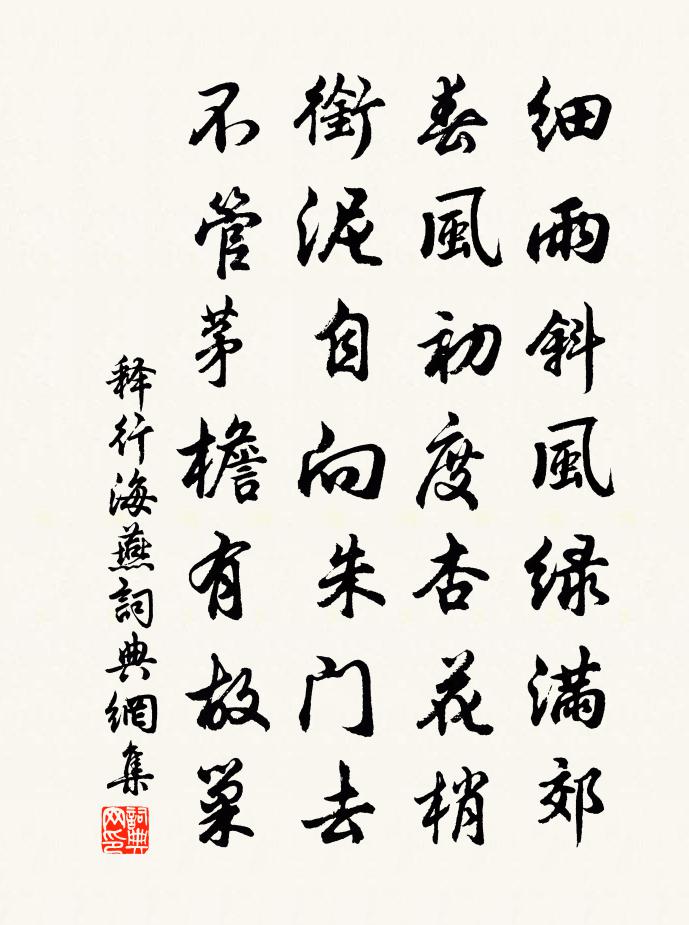 细雨斜風绿满郊
春風初度杏花梢
銜泥自向朱门去
不管茅檐有故巢
释行海燕詞典網集
詞典网印